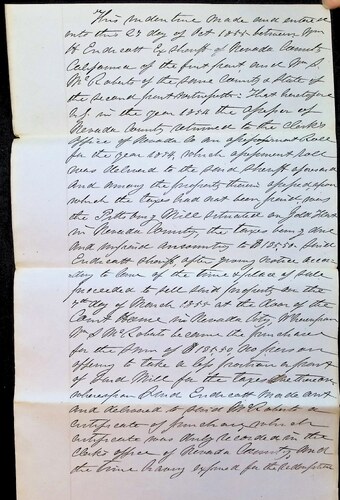 This indenture made and entered
into the 23 day of Oct 1855 between Wm
H Endicott Ex Sheriff of Nevada County
California of the first part and Wm S.
McRoberts of the same County & State of
the second part witnesseth: That heretofore
to wit, in the year 1854 the assessor of
Nevada County returned to the Clerk's
office of Nevada Co an assessment Roll
for the year 1854, which assessment roll
was delivered to the said Sheriff aforesaid
and among the property therein assessed upon
which the taxes had not been paid was
the Pittsburg Mill situated on Gold Flat
in Nevada County the taxes being due
and unpaid amounting to $125.50. Said
Endicott Sheriff after giving notice accor
ding to law of the time & place of sale
proceeded to sell said property on the
day of March 1855 at the door of the
Court House in Nevada City Whereupon
Wm S McRoberts became the purchaser
for the sum of no person
offering to take a less portion or part
of said Mill for the taxes due thereon
whereupon Said Endicott made out
and delivered to said McRoberts a
certificate of purchase which
certificate was duly recorded in the
clerk's office of Nevada County and
the time having expired for the redemption